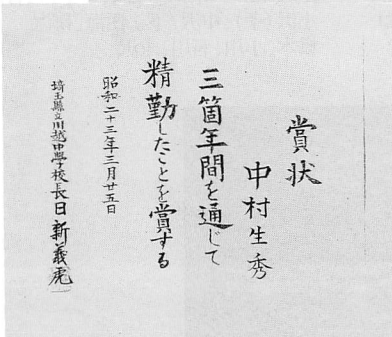 賞状
中村生秀
三箇年間を通じて
精勤したことを賞する
昭和二十三年三月廿五日
埼玉縣立川越中學校長日新義虎